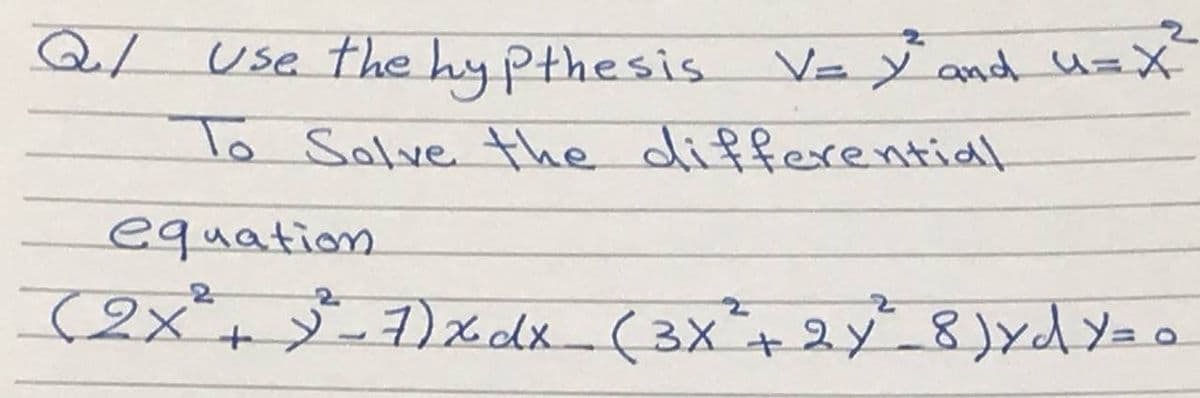 Q1 Use the hypthesis V= y² and u=x²
To Solve the differential
equation
(2x²+y²-7)xdx-(3x²+2y²-8)ydy=0